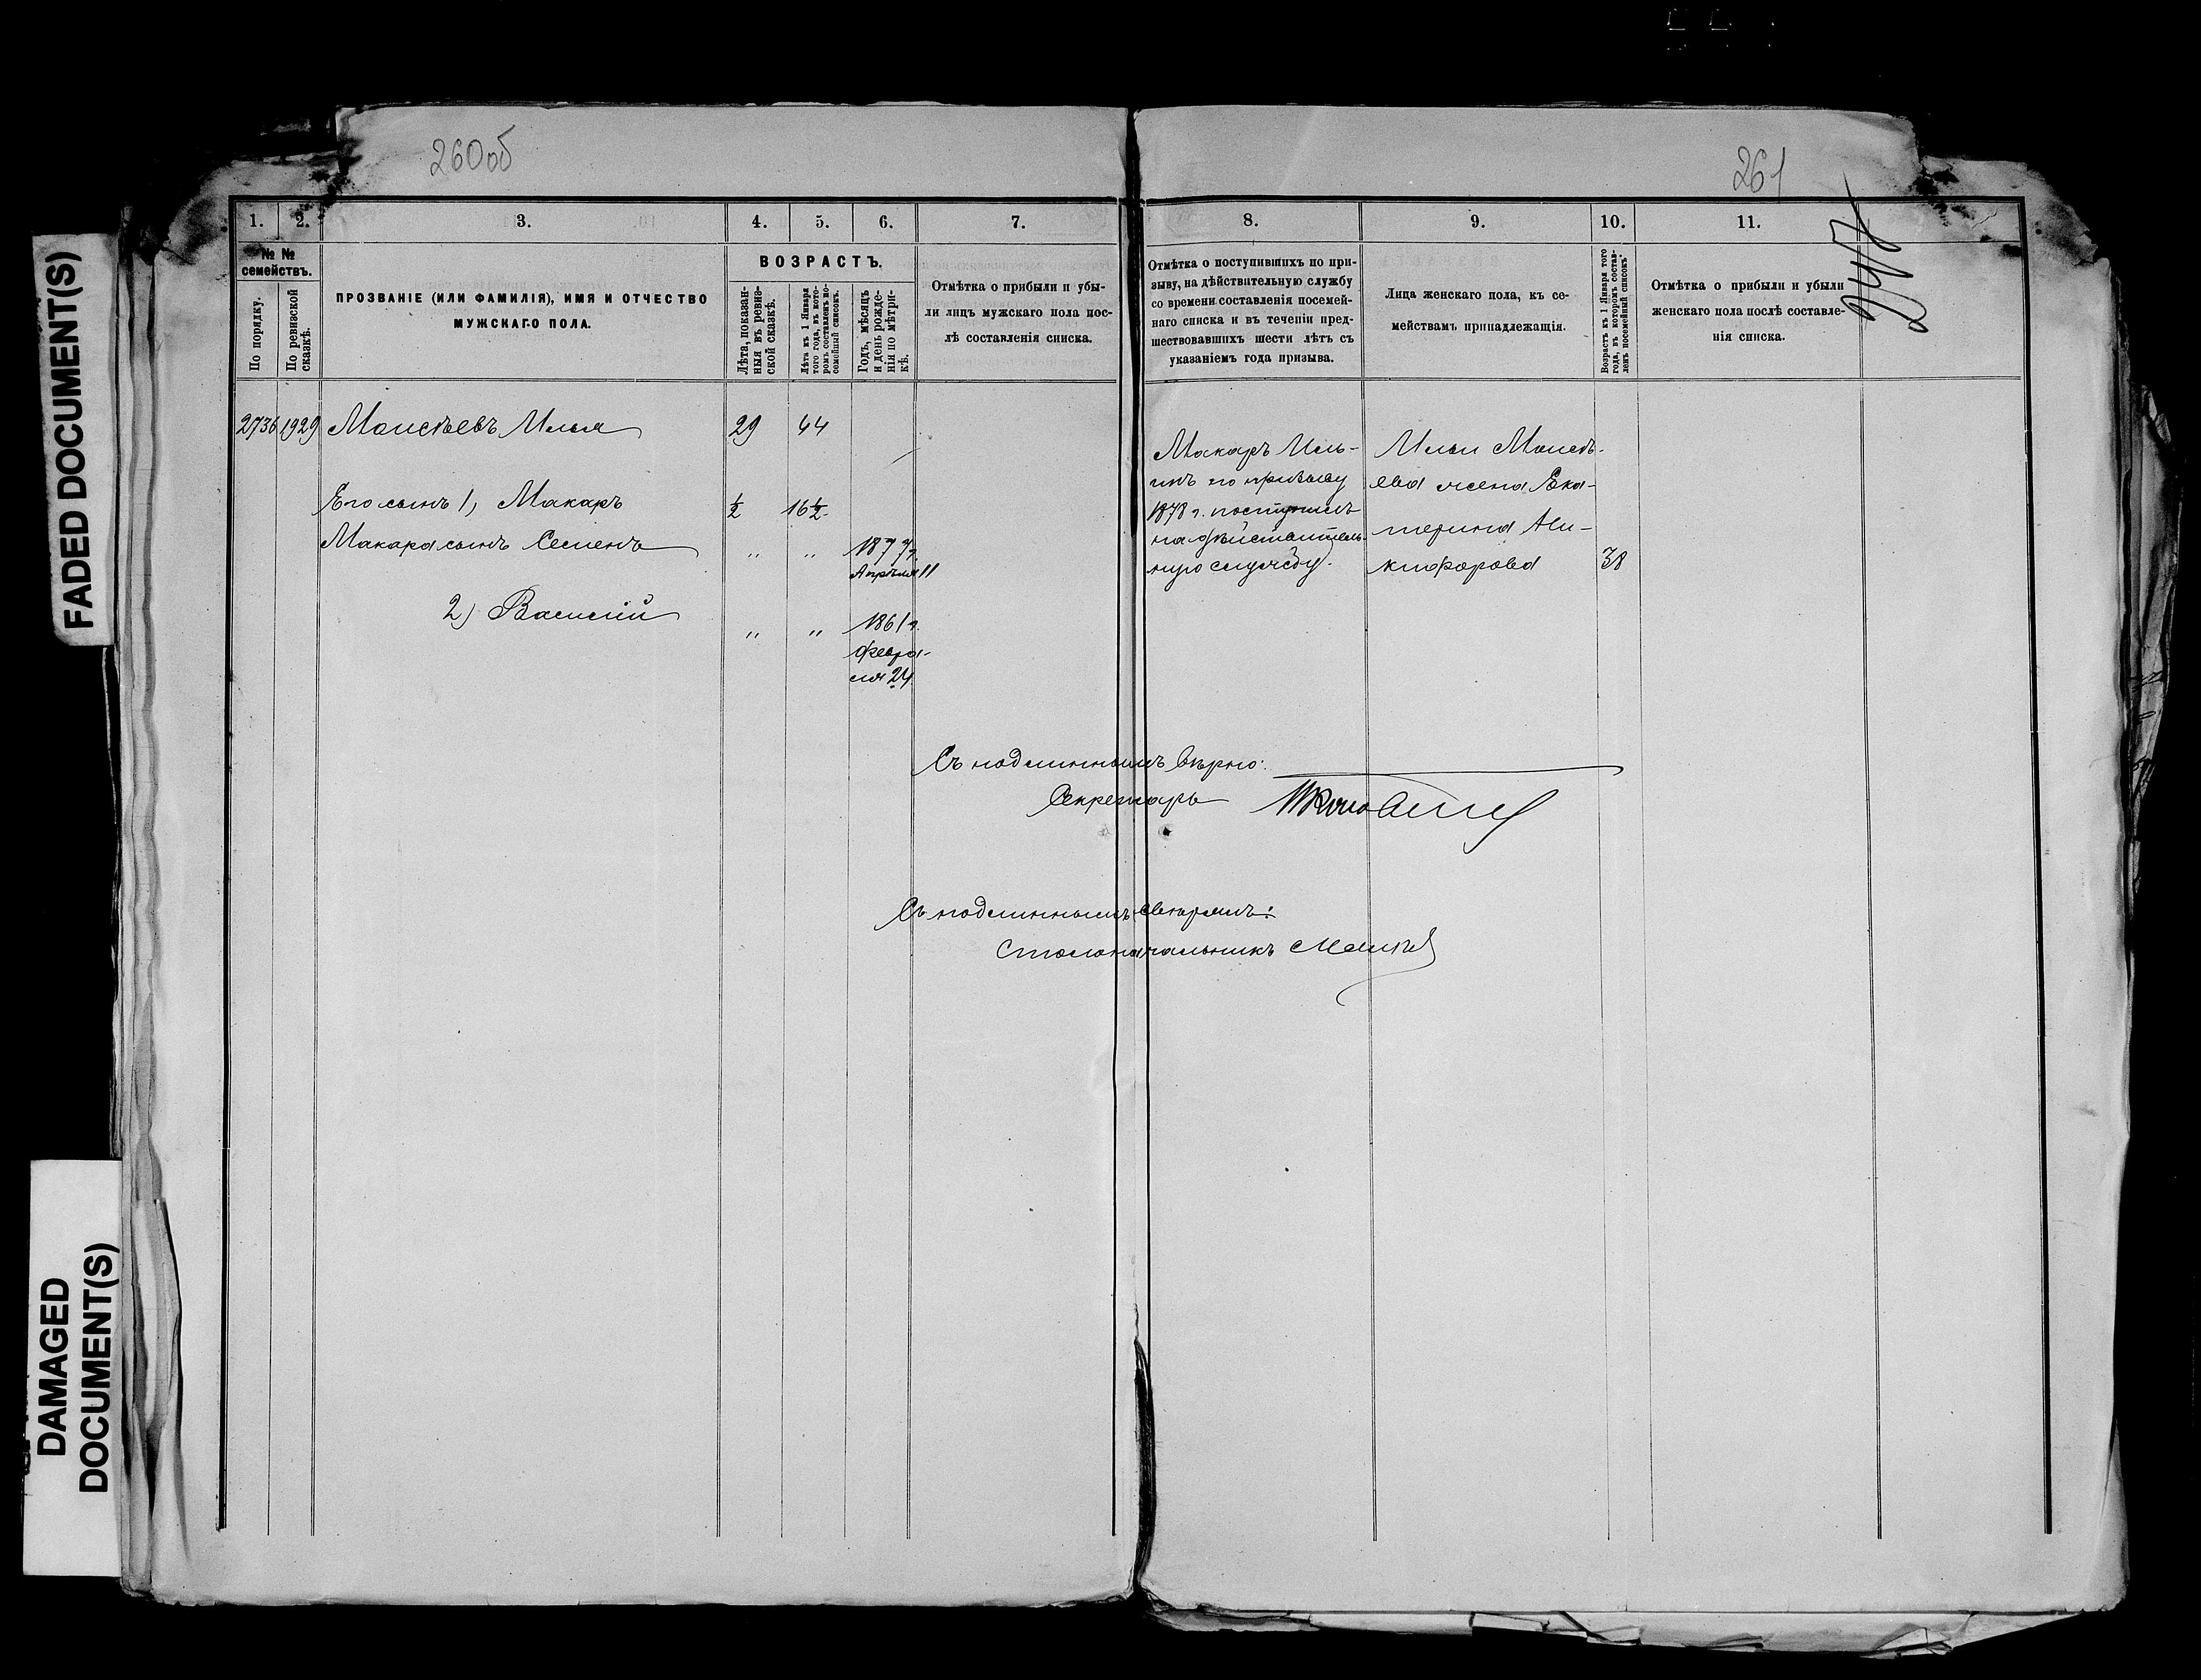 260об
261
247
FADED DOCUMENT(S)
DAMAGED
DOCUMENT(S)
1. 2. 3. 4. 5. 6. 7. 8. 9. 10. 11.
№ №
семействъ.
По порядку.
По ревизской
сказкѣ.
ПРОЗВАНІЕ (ИЛИ ФАМИЛІЯ), ИМЯ И ОТЧЕСТВО
МУЖСКАГО ПОЛА.
ВОЗРАСТЪ.
Лѣта, показан-
ныя въ ревиз-
ской сказкѣ.
Лѣта къ 1 Января
того года, въ кото-
ромъ составленъ по-
семейный списокъ.
Годъ, мѣсяцъ
и день рожде-
нія по метри-
кѣ.
Отмѣтка о прибыли и убы-
ли лицъ мужскаго пола пос-
лѣ составленія списка.
Отмѣтка о поступившихъ по при-
зыву, на дѣйствительную службу
со времени составленія посемей-
наго списка и въ теченіи пред-
шествовавшихъ шести лѣтъ съ
указаніемъ года призыва.
Лица женскаго пола, къ се-
мействамъ принадлежащія.
Возрастъ къ 1 Января того
года, въ которомъ состав-
ленъ посемейный списокъ
Отмѣтка о прибыли и убыли
женскаго пола послѣ составле-
нія списка.
2736 1929 Моисѣевъ Илья 29 44
Его сынъ 1, Макаръ ½ 16½
Макара сынъ Семенъ " " 1877г.
Апрѣля 11
2) Василій " " 1861г.
Февра-
ля 24
Макаръ Иль-
инъ по призыву
1878 г. поступилъ
на дѣйствитель-
ную службу.
Ильи Моисѣ-
ева жена Ека-
терина Ни-
кифорова 38
Съ подлиннымъ вѣрно:
Секретарь
Съ подлиннымъ свѣрялъ:
Столоначальникъ